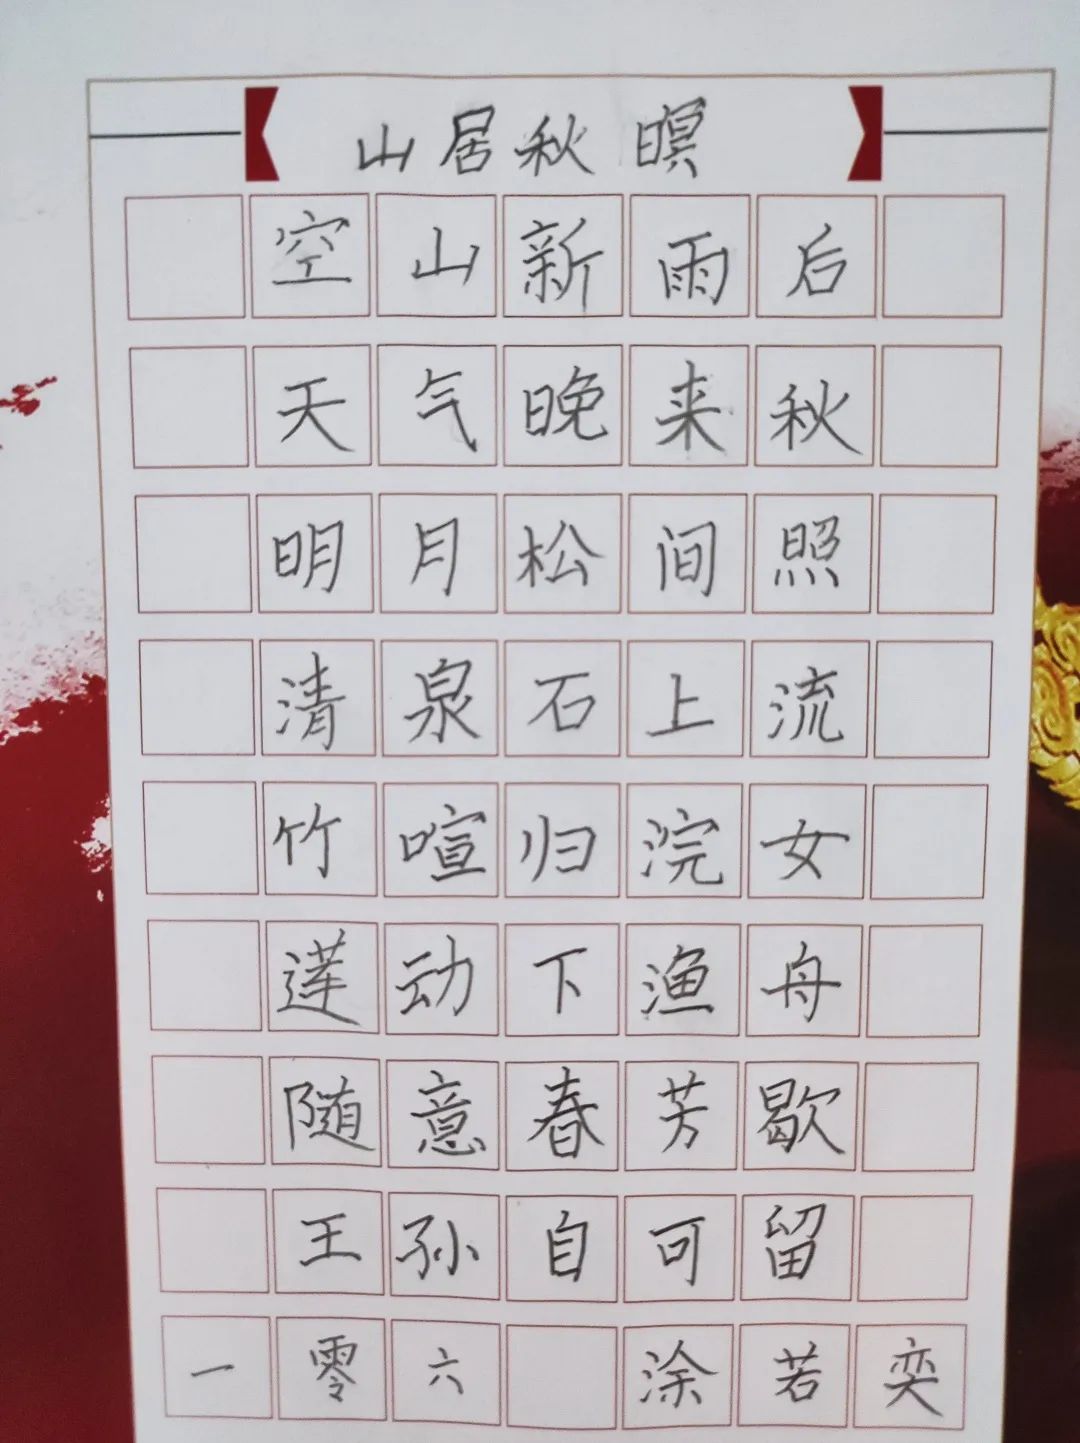 山居秋暝
空山新雨后
天气晚来秋
明月松间照
清泉石上流
竹喧归浣女
莲动下渔舟
随意春芳歇
王孙自可留
一零六 涂若奕